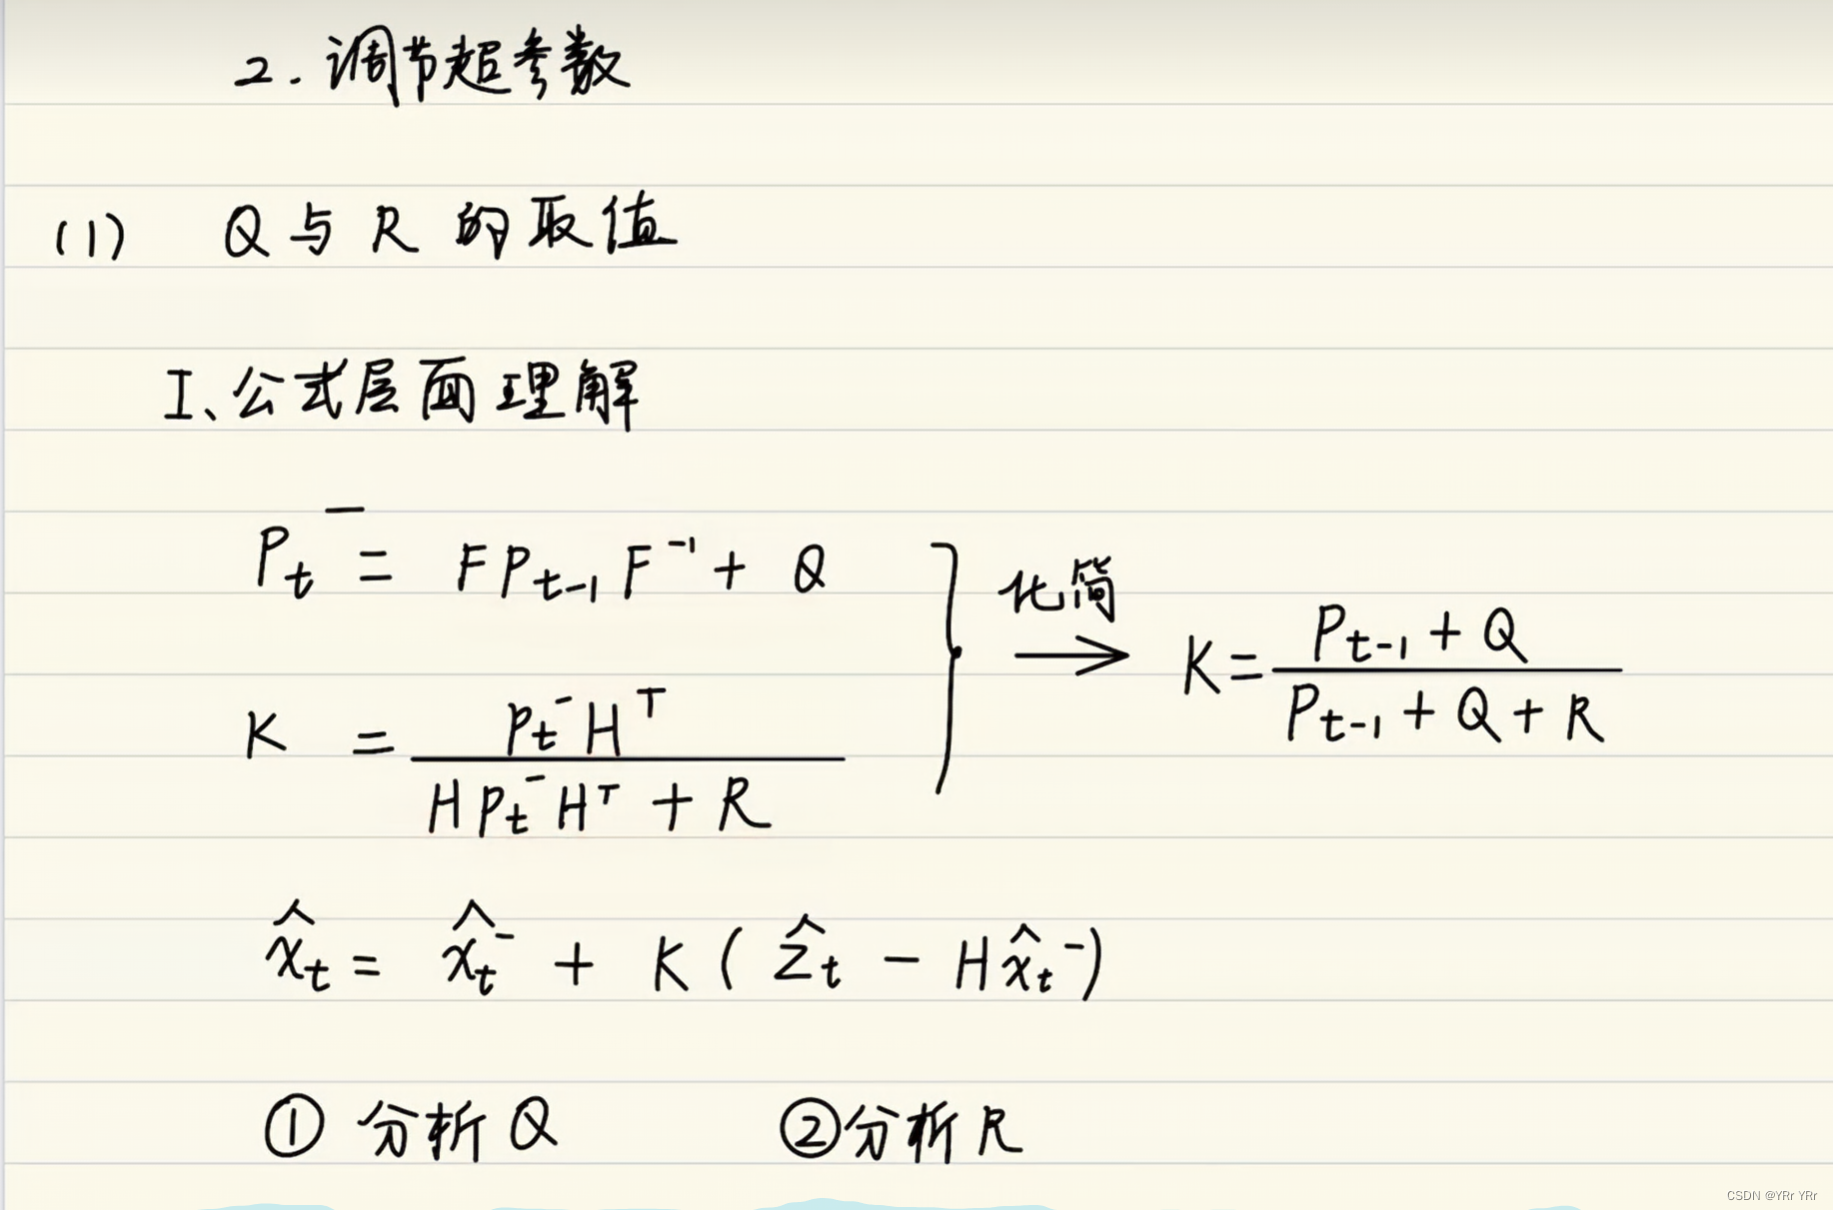 2. 调节超参数
(1) Q 与 R 的取值
I、公式层面理解
P_t^- = F P_{t-1} F^{-1} + Q
K = \frac{P_t^- H^T}{H P_t^- H^T + R}
化简
→ K = \frac{P_{t-1} + Q}{P_{t-1} + Q + R}
\hat{x}_t = \hat{x}_t^- + K ( \hat{z}_t - H \hat{x}_t^- )
① 分析 Q ② 分析 R
CSDN @YRr YRr